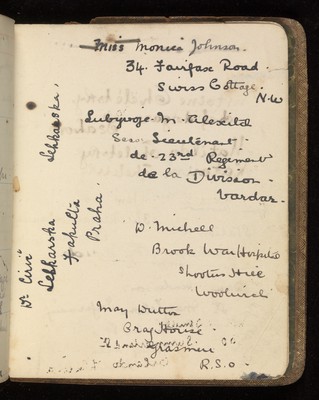 Miss Monica Johnson.
34. Fairfax Road.
Swiss Cottage.
N.W
Lubivoje. M. Alexitch
Sous Lieutenant
de. 23rd Regiment
de la Division
Vardar.
Dr. Cirić
Lekkarska
Fakulta
Praha.
D. Michell
Brook War Hospital
Shooters Hill
Woolwich
May Dutton
Gray House.
Grasmere
R.S.O.